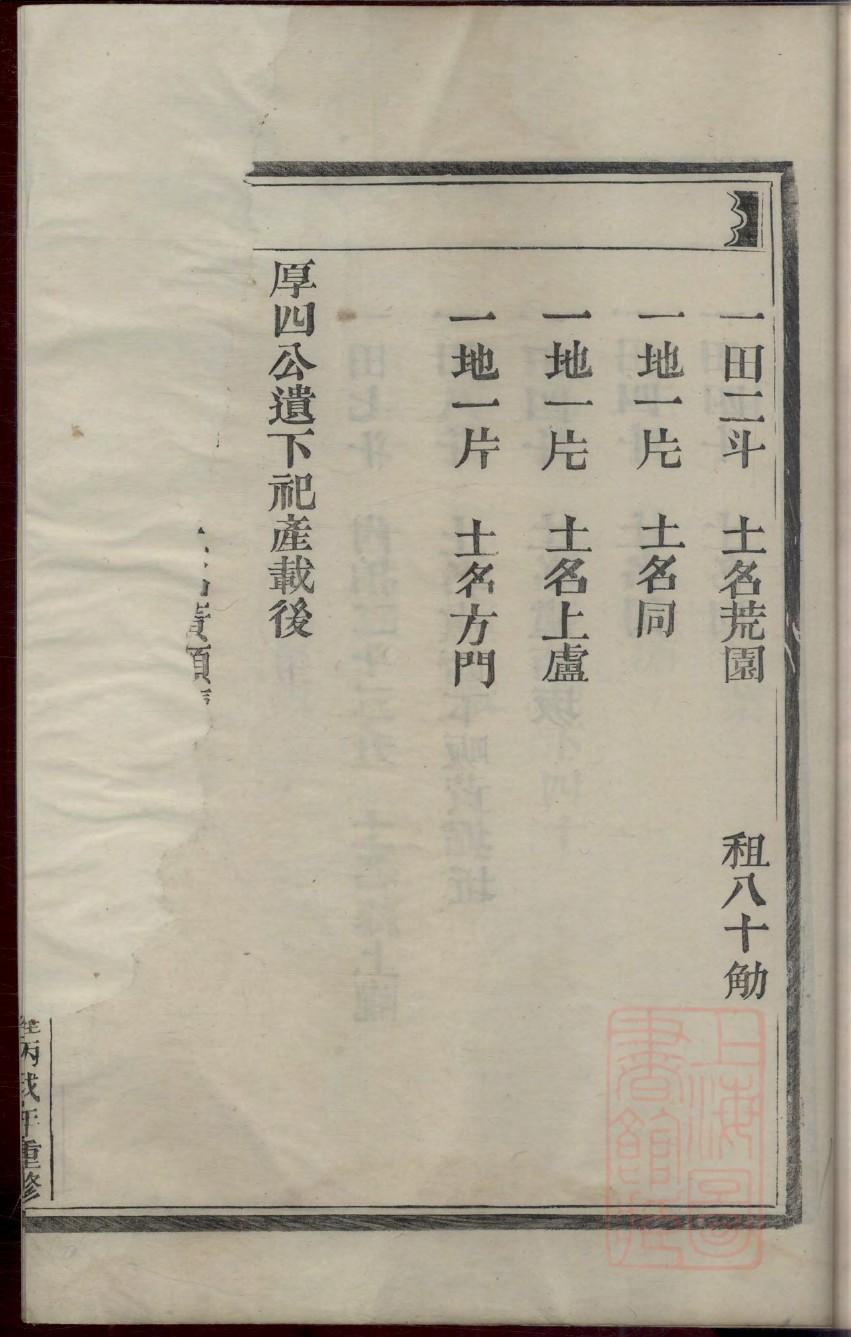 一田二斗　土名荒園　租八十觔
一地一片　土名同
一地一片　土名上盧
一地一片　土名方門
厚四公遺下祀產載後
丙戌年重修
上海圖書館藏